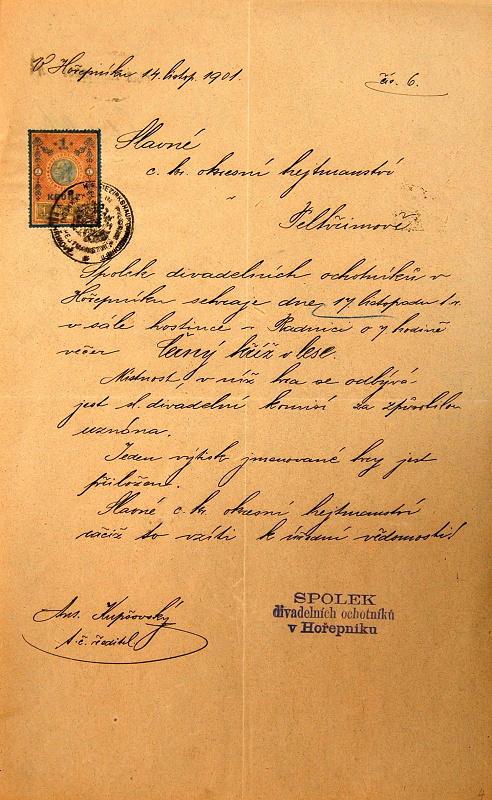 V Hořepníku 14. listop. 1901.
čís. 6.
Slavné
c. kr. okresní hejtmanství
v
Pelhřimově
1
Spolek divadelních ochotníků v
Hořepníku sehraje dne 17 listopadu t. r.
v sále hostince - Radnici o 7 hodině
večer Černý kříž v lese.
Místnost, v níž hra se odbývá
jest sl. divadelní komisí za způsobilou
uznána.
Jeden výtisk jmenované hry jest
přiložen.
Slavné c. kr. okresní hejtmanství
račiž to vzíti k úřední vědomosti!
Ant.
t. č. ředitel.
SPOLEK
divadelních ochotníků
v Hořepníku
4